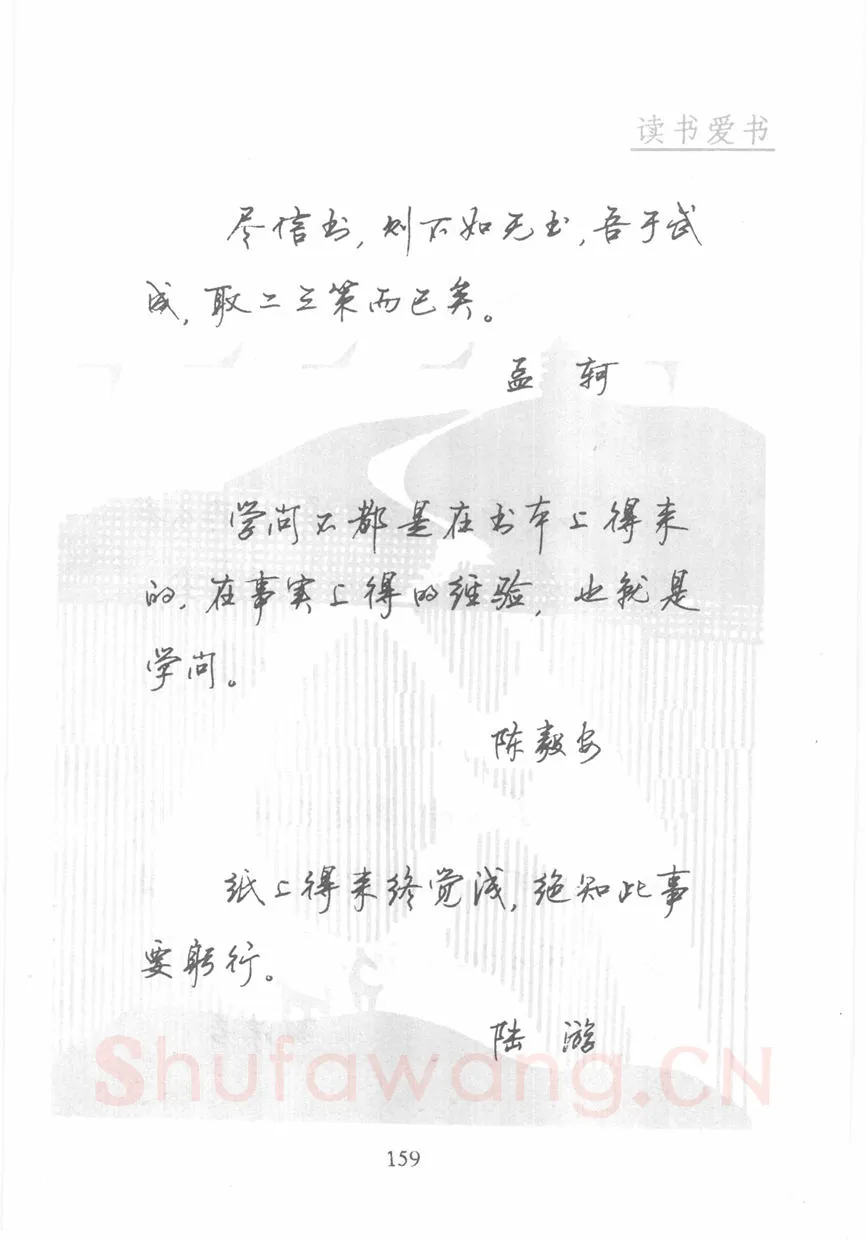 读书爱书
尽信书,则不如无书,吾于武
成,取二三策而已矣。
孟 轲
学问不都是在书本上得来
的,在事实上得的经验,也就是
学问。
陈毅安
纸上得来终觉浅,绝知此事
要躬行。
陆 游
Shufawang.CN
159